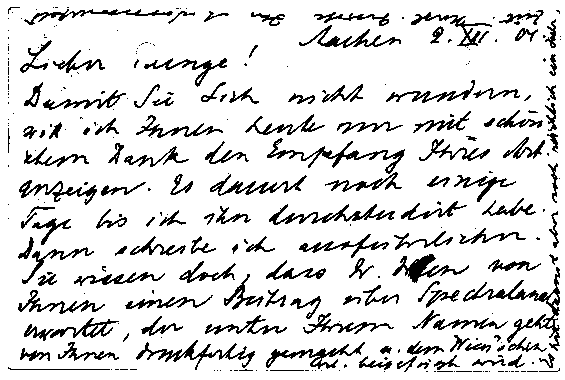 Aachen 2. XII. 04
Lieber Runge!
Damit Sie Sich nicht wundern,
will ich Ihnen heute nur mit schön
stem Dank den Empfang Ihres Art.
anzeigen. Es dauert noch einige
Tage bis ich ihn durchstudirt habe.
Dann schreibe ich ausführlicher.
Sie wissen doch, dass W. Wien von
Ihnen einen Beitrag über Spectralanal
erwartet, der unter Ihrem Namen geht
von Ihnen druckfertig gemacht u. dem Wien'schen
Art. beigefügt wird.